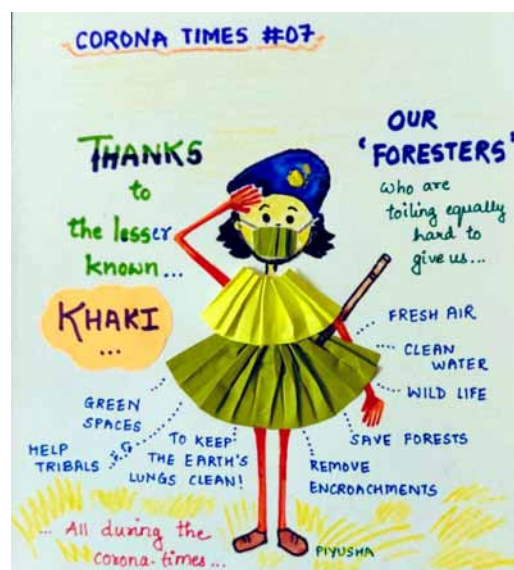 CORONA TIMES #07
THANKS
to
the lesser
known...
KHAKI
...
OUR
'FORESTERS'
who are
toiling equally
hard to
give us...
FRESH AIR
CLEAN
WATER
WILD LIFE
SAVE FORESTS
REMOVE
ENCROACHMENTS
TO KEEP
THE EARTH'S
LUNGS CLEAN!
GREEN
SPACES
HELP
TRIBALS
... All during the
corona-times...
PIYUSHA